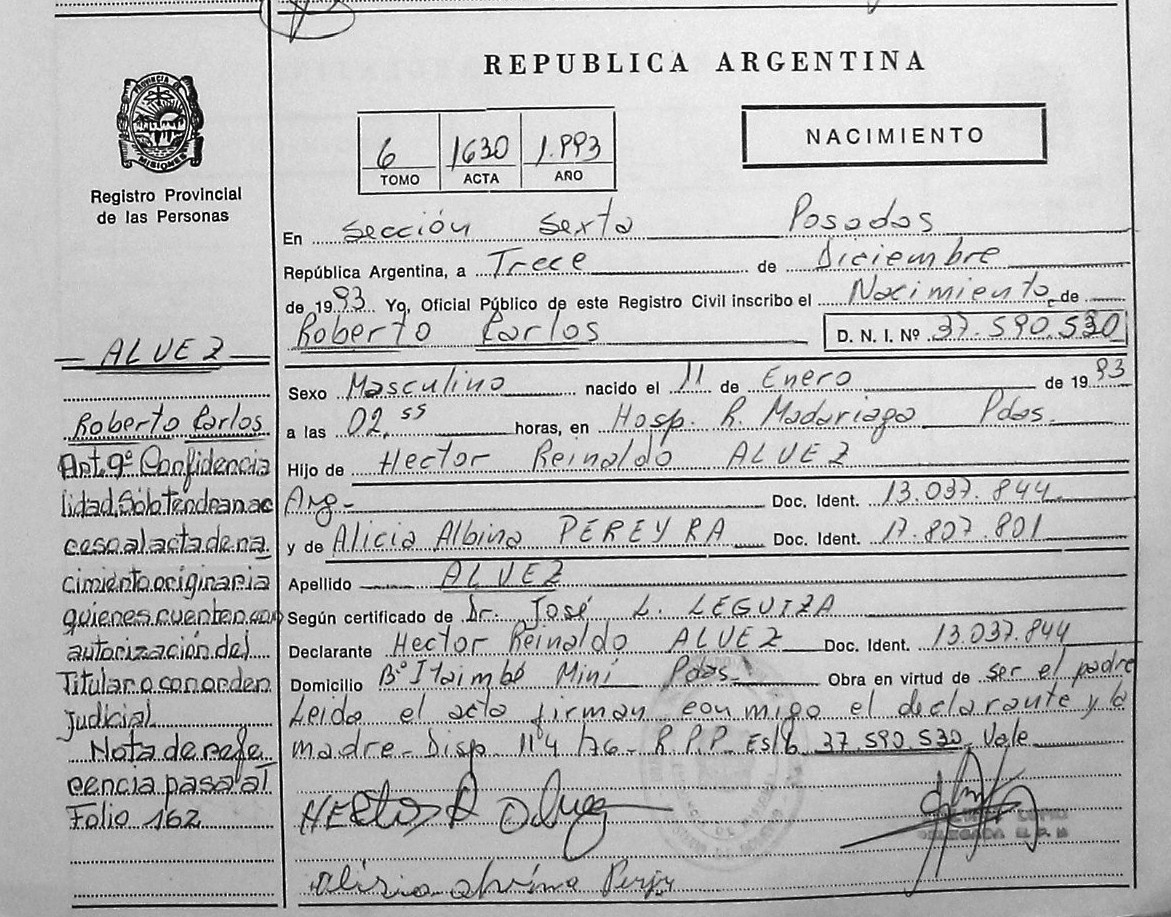 PROVINCIA DE
MISIONES
Registro Provincial
de las Personas
ALVEZ
Roberto Carlos
Art. 9º Confidencia
lidad. Sólo tendran ac
ceso al acta de na
cimiento originaria
quienes cuenten con
autorización del
Titular o con orden
Judicial
Nota de refe
rencia pasa al
Folio 162
REPUBLICA ARGENTINA
6 1630 1.993
TOMO ACTA AÑO
NACIMIENTO
En Sección Sexta Posadas
República Argentina, a Trece de Diciembre
de 1993 Yo, Oficial Público de este Registro Civil inscribo el Nacimiento de
Roberto Carlos D. N. I. Nº 37.590.530
Sexo Masculino nacido el 11 de Enero de 1993
a las 02,55 horas, en Hosp. R. Madariaga Pdas.
Hijo de Hector Reinaldo ALVEZ
Arg.- Doc. Ident. 13.037.844
y de Alicia Albina PEREYRA Doc. Ident. 17.807.801
Apellido ALVEZ
Según certificado de Dr. José L. LEGUIZA
Declarante Hector Reinaldo ALVEZ Doc. Ident. 13.037.844
Domicilio Bº Itaimbé Miní Pdas. Obra en virtud de ser el padre
Leida el acta firman conmigo el declarante y la
madre - Disp. 114/76 - R.P.P. Es/b 37.590.530. Vale
HEctor R